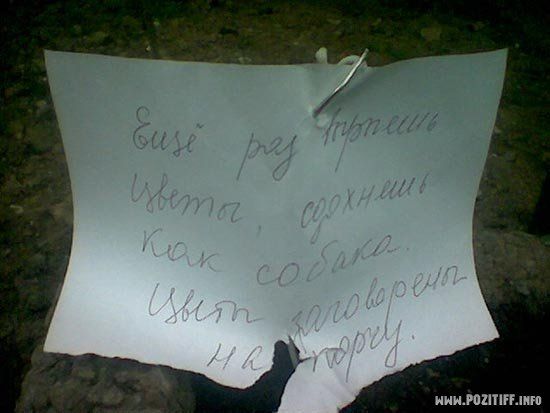 Ещё раз тронешь
цветы, сдохнешь
как собака.
Цветы заговорены
на порчу.
www.POZITIFF.INFO